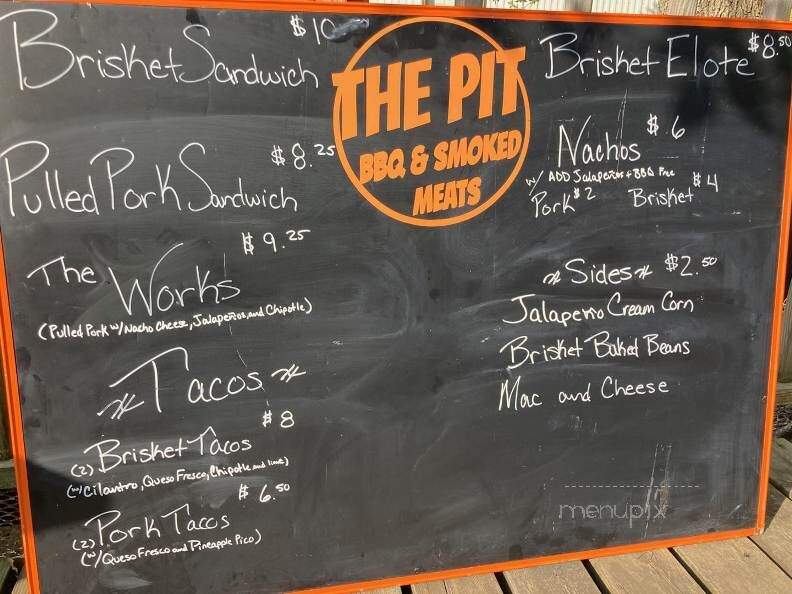 Brisket Sandwich $10
Pulled Pork Sandwich $8.25
The Works $9.25
(Pulled Pork w/Nacho Cheese, Jalapeños, and Chipotle)
Tacos
$8
(2) Brisket Tacos
(w/Cilantro, Queso Fresco, Chipotle and lime)
$6.50
(2) Pork Tacos
(w/Queso Fresco and Pineapple Pico)
THE PIT
BBQ & SMOKED
MEATS
Brisket Elote $8.50
Nachos $6
w/ ADD Jalapeños + BBQ Free
Pork $2 Brisket $4
Sides $2.50
Jalapeño Cream Corn
Brisket Baked Beans
Mac and Cheese
menupix